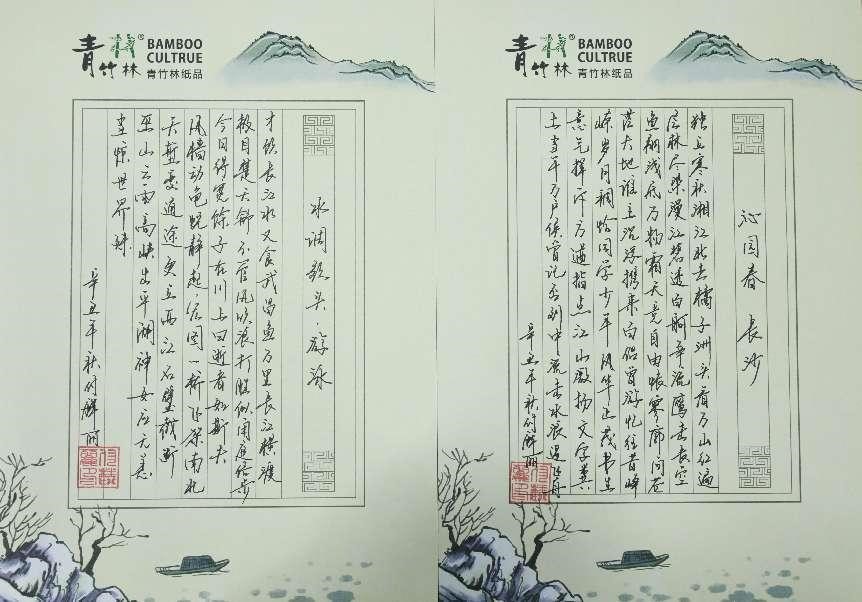 青竹林
BAMBOO
CULTRUE
青竹林纸品
水调歌头·游泳
才饮长江水又食武昌鱼万里长江横渡
极目楚天舒不管风吹浪打胜似闲庭信步
今日得宽馀子在川上曰逝者如斯夫
风樯动龟蛇静起宏图一桥飞架南北
天堑变通途更立西江石壁截断
巫山云雨高峡出平湖神女应无恙
当惊世界殊
辛丑年秋付解丽
青竹林
BAMBOO
CULTRUE
青竹林纸品
沁园春 长沙
独立寒秋湘江北去橘子洲头看万山红遍
层林尽染漫江碧透百舸争流鹰击长空
鱼翔浅底万物霜天竞自由怅寥廓问苍
茫大地谁主沉浮携来百侣曾游忆往昔峥
嵘岁月稠恰同学少年风华正茂书生
意气挥斥方遒指点江山激扬文字粪
土当年万户侯曾记否到中流击水浪遏飞舟
辛丑年秋付解丽